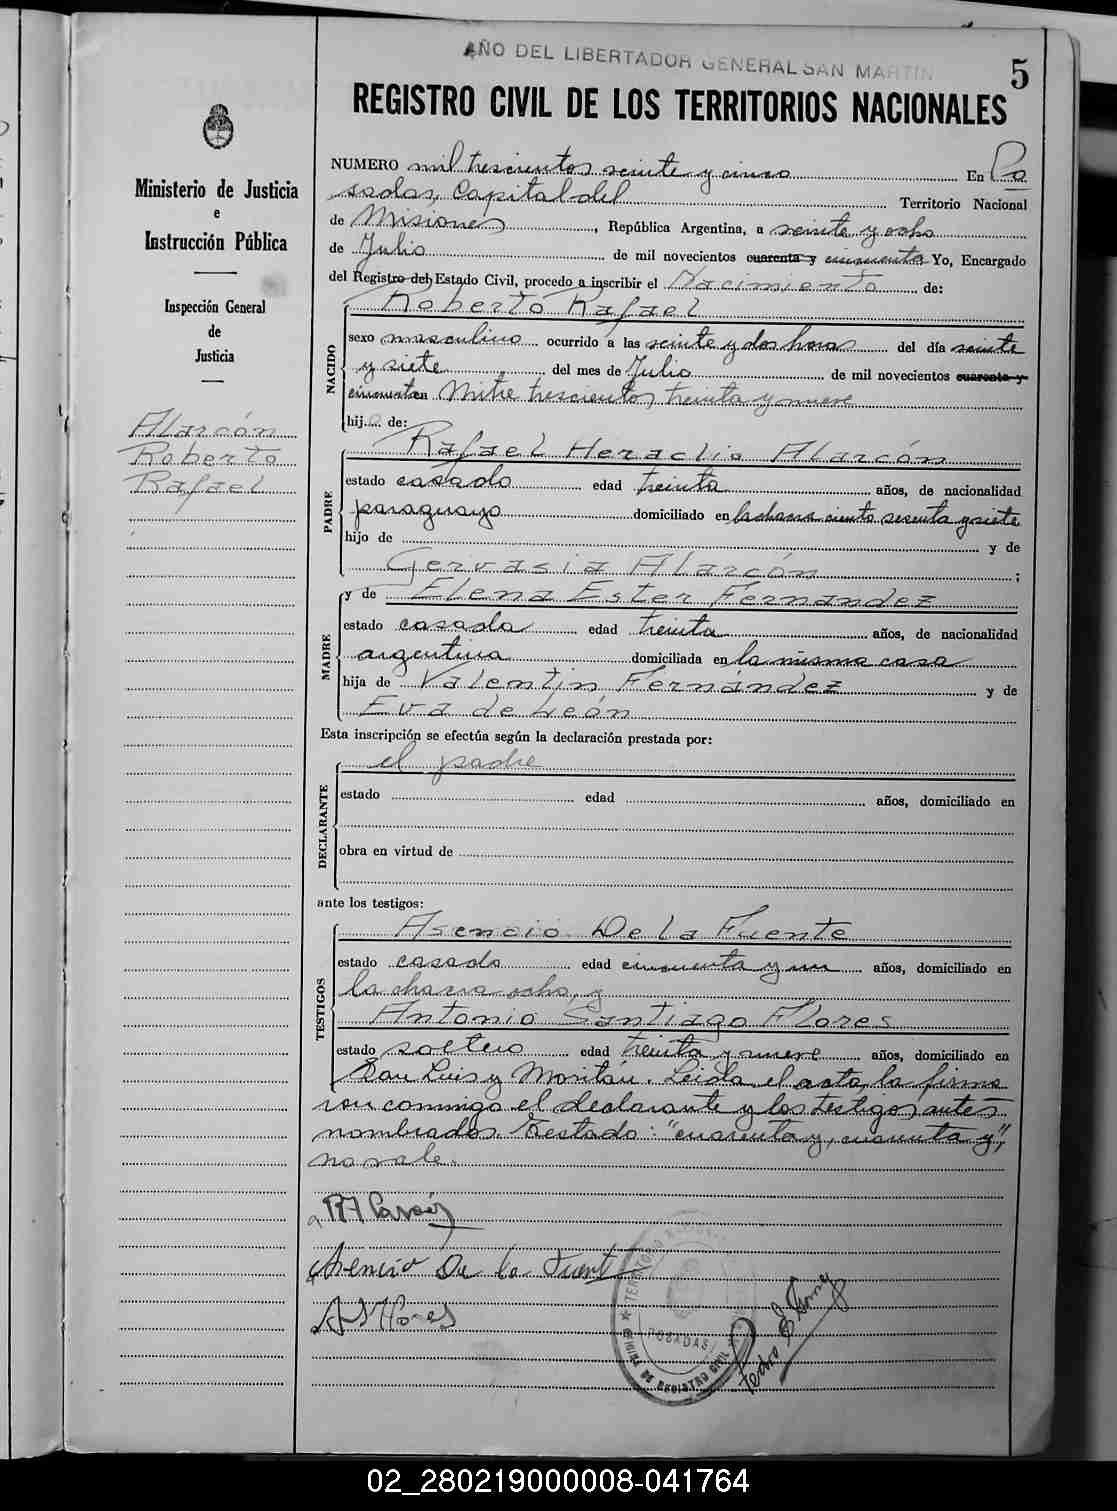 AÑO DEL LIBERTADOR GENERAL SAN MARTIN
5
REGISTRO CIVIL DE LOS TERRITORIOS NACIONALES
Ministerio de Justicia
e
Instrucción Pública
Inspección General
de
Justicia
Alarcón
Roberto
Rafael
NUMERO mil trescientos veinte y cinco En Po
sadas, Capital del Territorio Nacional
de Misiones, República Argentina, a veinte y ocho
de Julio de mil novecientos cuarenta y cincuenta Yo, Encargado
del Registro del Estado Civil, procedo a inscribir el Nacimiento de:
NACIDO
Roberto Rafael
sexo masculino ocurrido a las veinte y dos horas del día veinte
y siete del mes de Julio de mil novecientos cuarenta y
cincuenta en Mitre trescientos treinta y nueve
hijo de:
PADRE
Rafael Heraclio Alarcón
estado casado edad treinta años, de nacionalidad
paraguayo domiciliado en la chacra ciento sesenta y siete
hijo de y de
Gervasia Alarcón ;
MADRE
y de Elena Ester Fernández
estado casada edad treinta años, de nacionalidad
argentina domiciliada en la misma casa
hija de Valentín Fernández y de
Eva de León
Esta inscripción se efectúa según la declaración prestada por:
DECLARANTE
el padre
estado edad años, domiciliado en
obra en virtud de
ante los testigos:
TESTIGOS
Asencio De la Fuente
estado casado edad cincuenta y un años, domiciliado en
la chacra ocho, y
Antonio Santiago Flores
estado soltero edad treinta y nueve años, domiciliado en
San Luis y Moritán. Leida el acta, la firma
con conmigo el declarante y los testigos antes
nombrados. Testado: "cuarenta y, cuarenta y",
no vale.
Asencio De la Fuente
A S Flores
TERRITORIO NACIONAL
POSADAS
OFICINA DE REGISTRO CIVIL
Pedro E
02_280219000008-041764